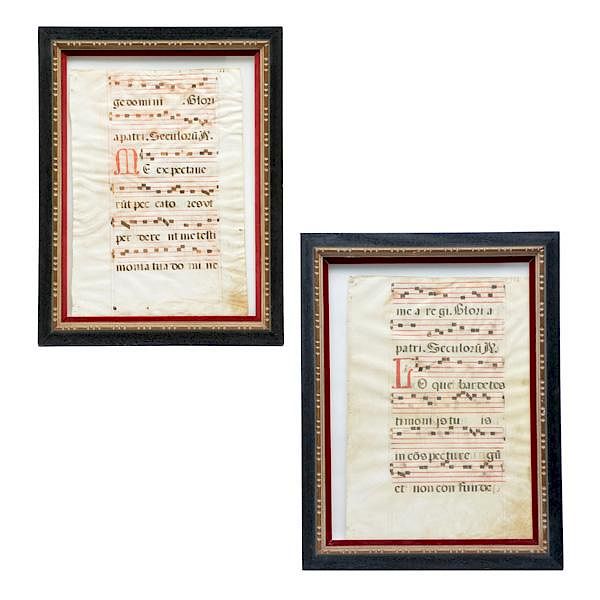 ge domini . Glori
a patri. Seculorũ A.
ME expectaue
rũt pec cato res vt
per dere nt me testi
monia tua do mi ne
me a re gi. Glori a
patri. Seculorũ A.
LO que bar de tes
timoni js tu is
in cõs pectu re gũ
et non con fun de